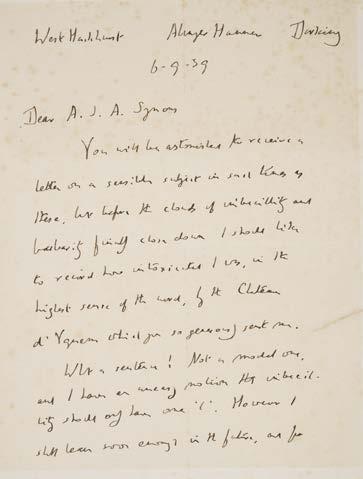 West Hackhurst Abinger Hammer Dorking
6-9-39
Dear A. J. A. Symons
You will be astonished to receive a
letter on a sensible subject in such times as
these, but before the clouds of imbecillity and
barbarity finally close down I should like
to record how intoxicated I was, in the
highest sense of the word, by the Château
d'Yquem which you so generously sent me.
What a sentence! Not a model one,
and I have an uneasy notion that imbecil-
lity should only have one 'l'. However I
shall learn soon enough in the future, and for